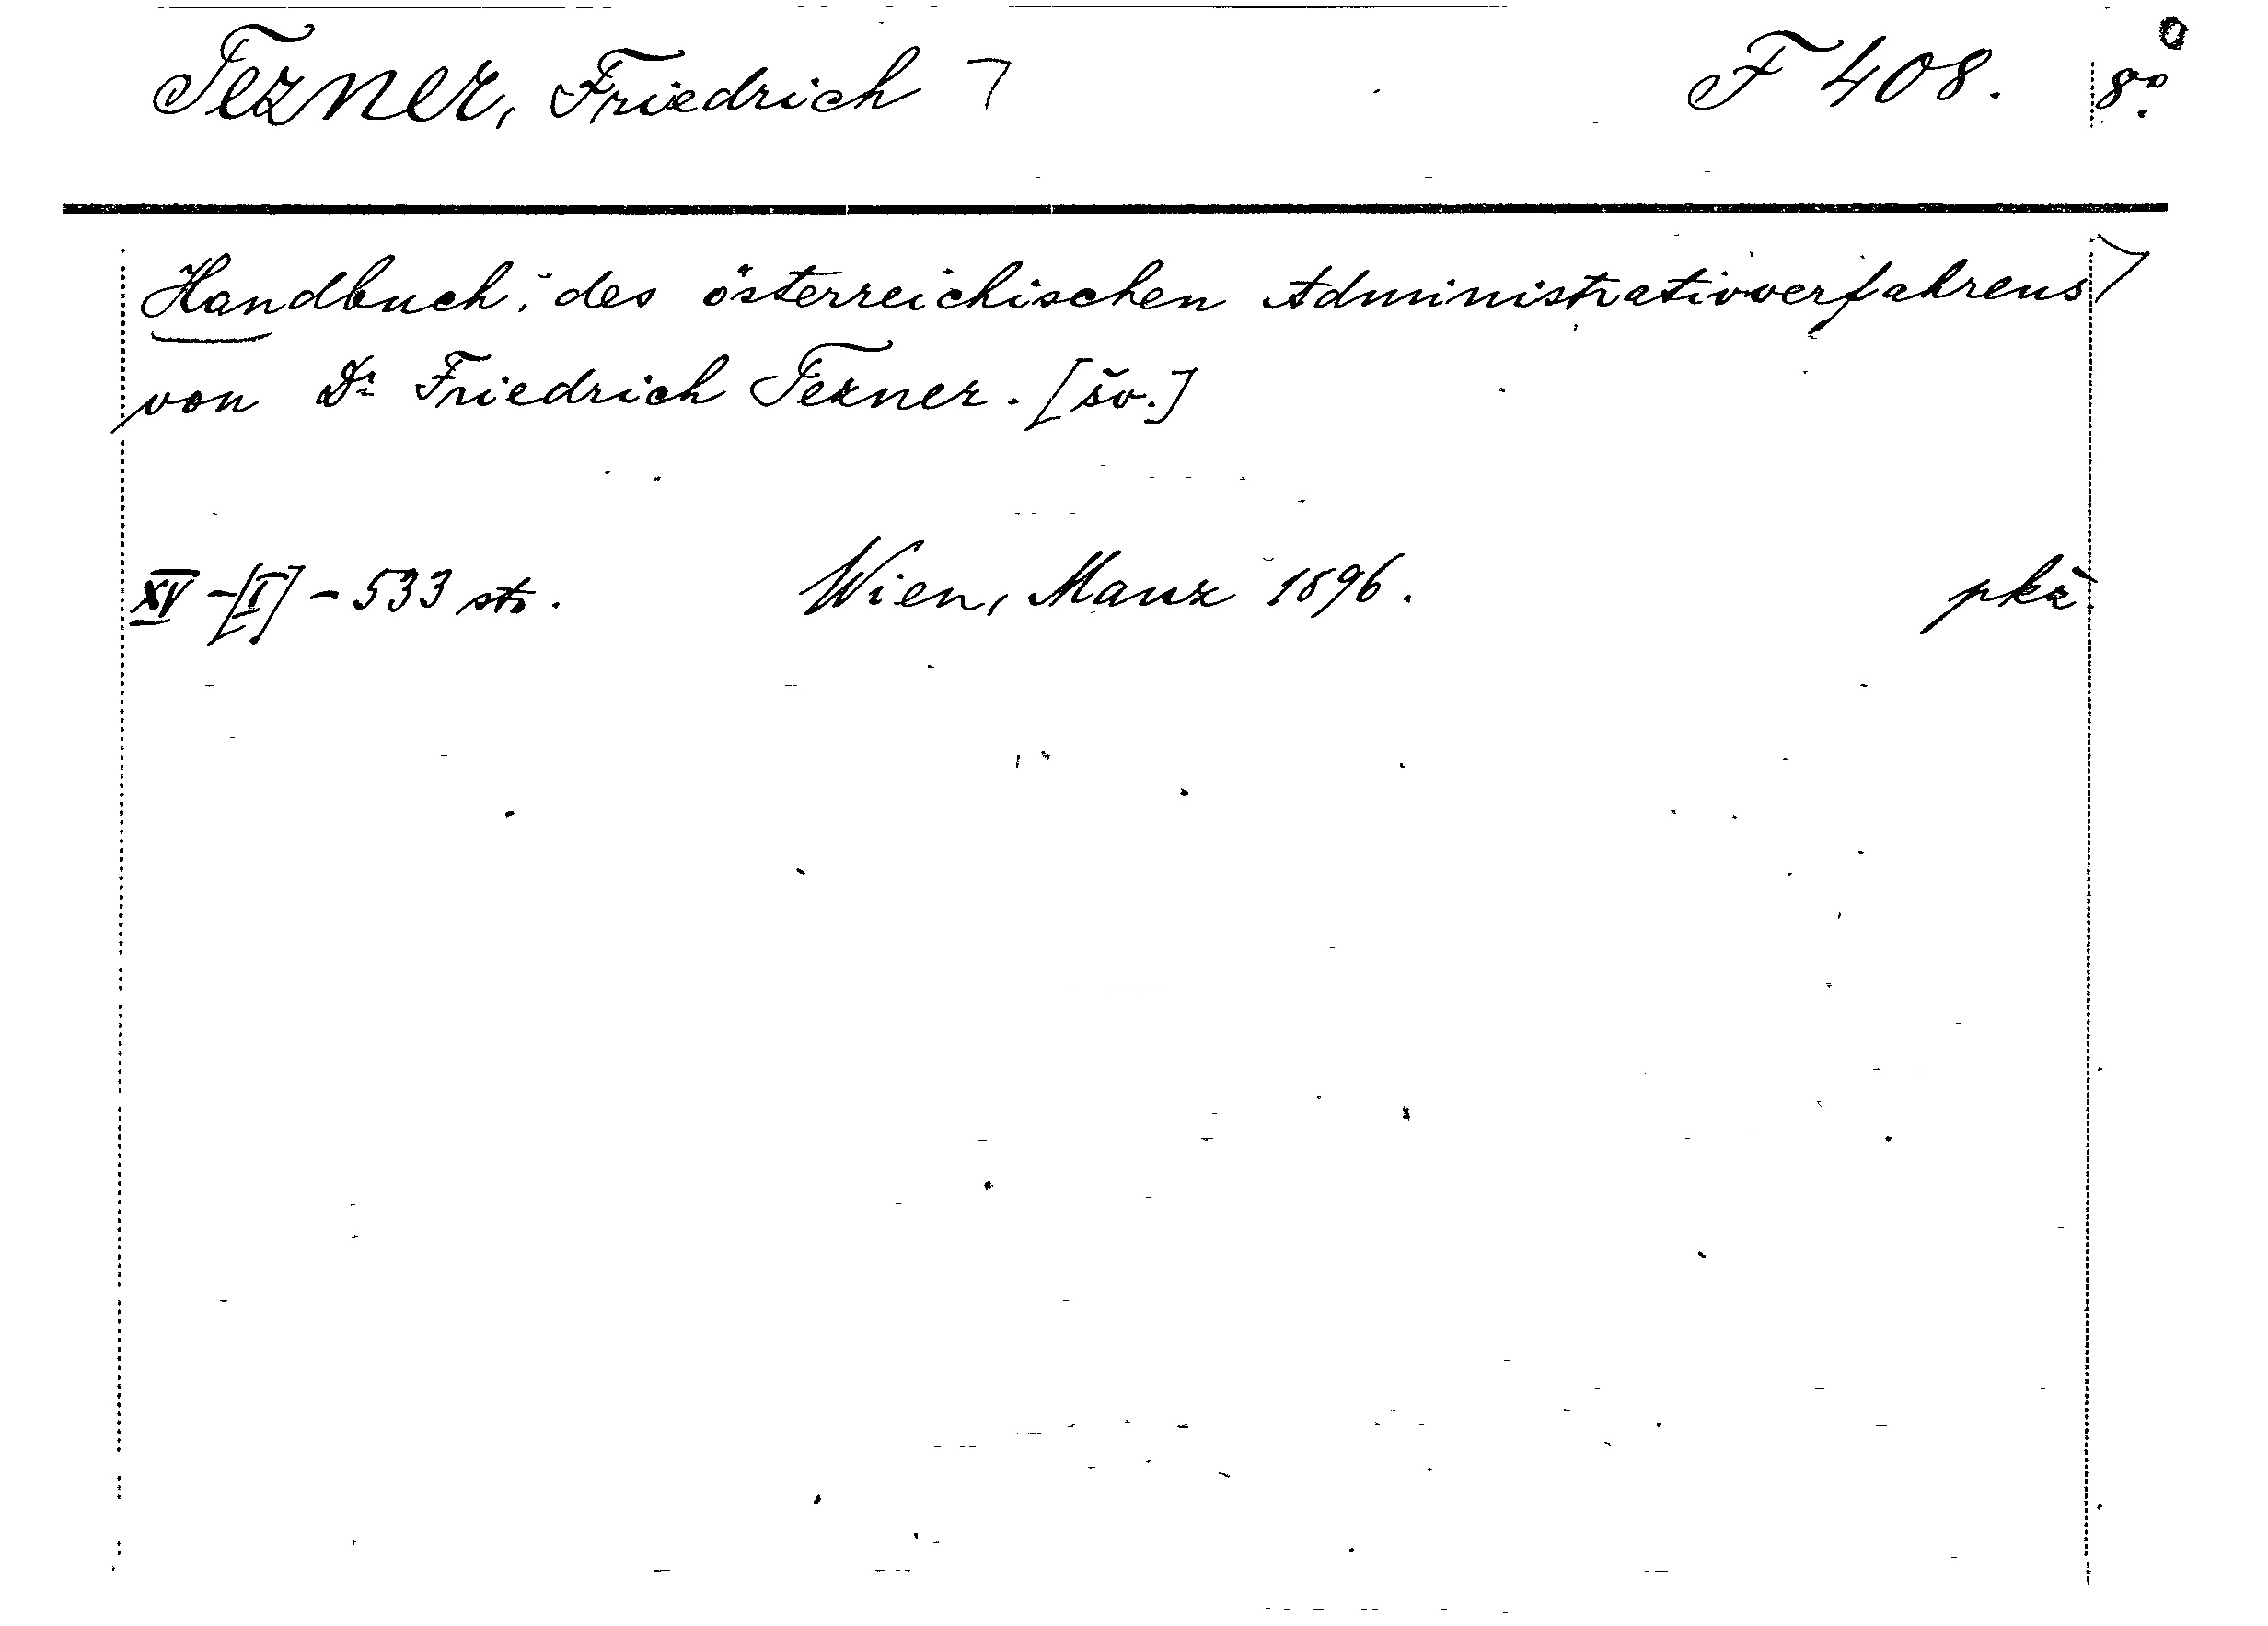 Tezner, Friedrich ㄱ F 408. 8º.
Handbuch des österreichischen Administrativverfahrens
von Dr Friedrich Tezner. [šv.]
XV-[I]-533 str. Wien, Manz 1896. pkž